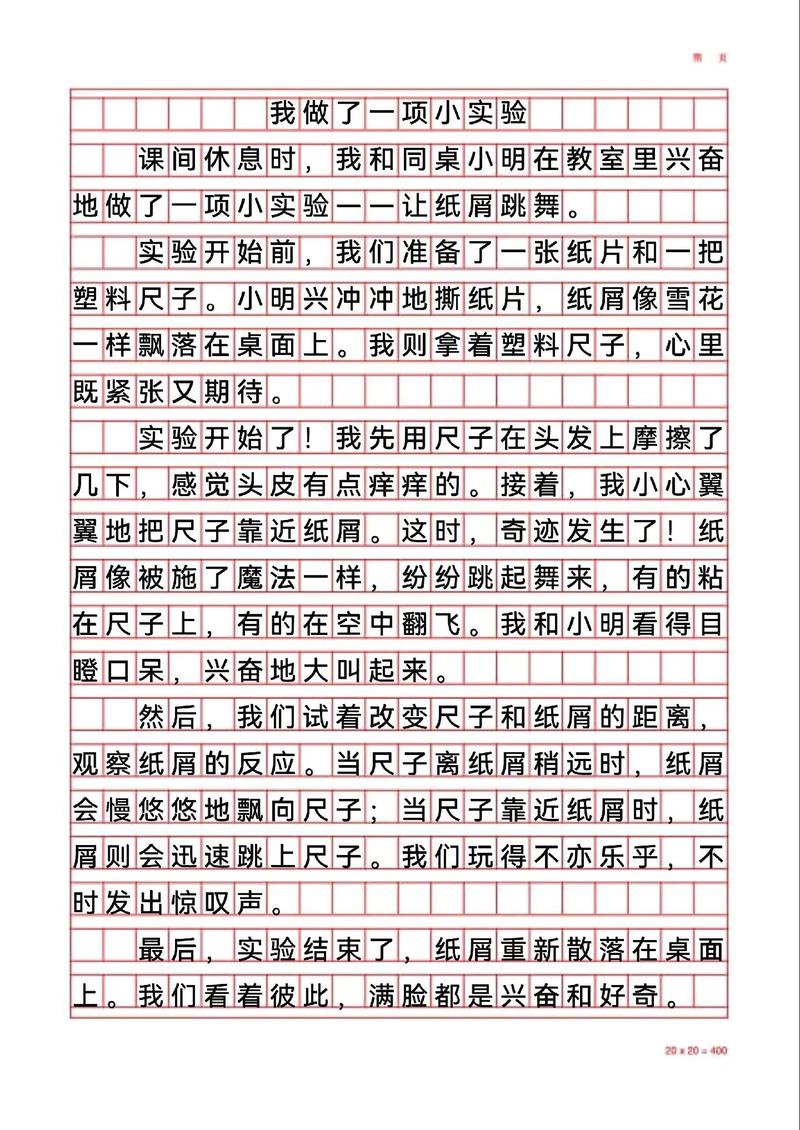 第 页
我做了一项小实验
课间休息时，我和同桌小明在教室里兴奋
地做了一项小实验一一让纸屑跳舞。
实验开始前，我们准备了一张纸片和一把
塑料尺子。小明兴冲冲地撕纸片，纸屑像雪花
一样飘落在桌面上。我则拿着塑料尺子，心里
既紧张又期待。
实验开始了！我先用尺子在头发上摩擦了
几下，感觉头皮有点痒痒的。接着，我小心翼
翼地把尺子靠近纸屑。这时，奇迹发生了！纸
屑像被施了魔法一样，纷纷跳起舞来，有的粘
在尺子上，有的在空中翻飞。我和小明看得目
瞪口呆，兴奋地大叫起来。
然后，我们试着改变尺子和纸屑的距离，
观察纸屑的反应。当尺子离纸屑稍远时，纸屑
会慢悠悠地飘向尺子；当尺子靠近纸屑时，纸
屑则会迅速跳上尺子。我们玩得不亦乐乎，不
时发出惊叹声。
最后，实验结束了，纸屑重新散落在桌面
上。我们看着彼此，满脸都是兴奋和好奇。
20 x 20 = 400